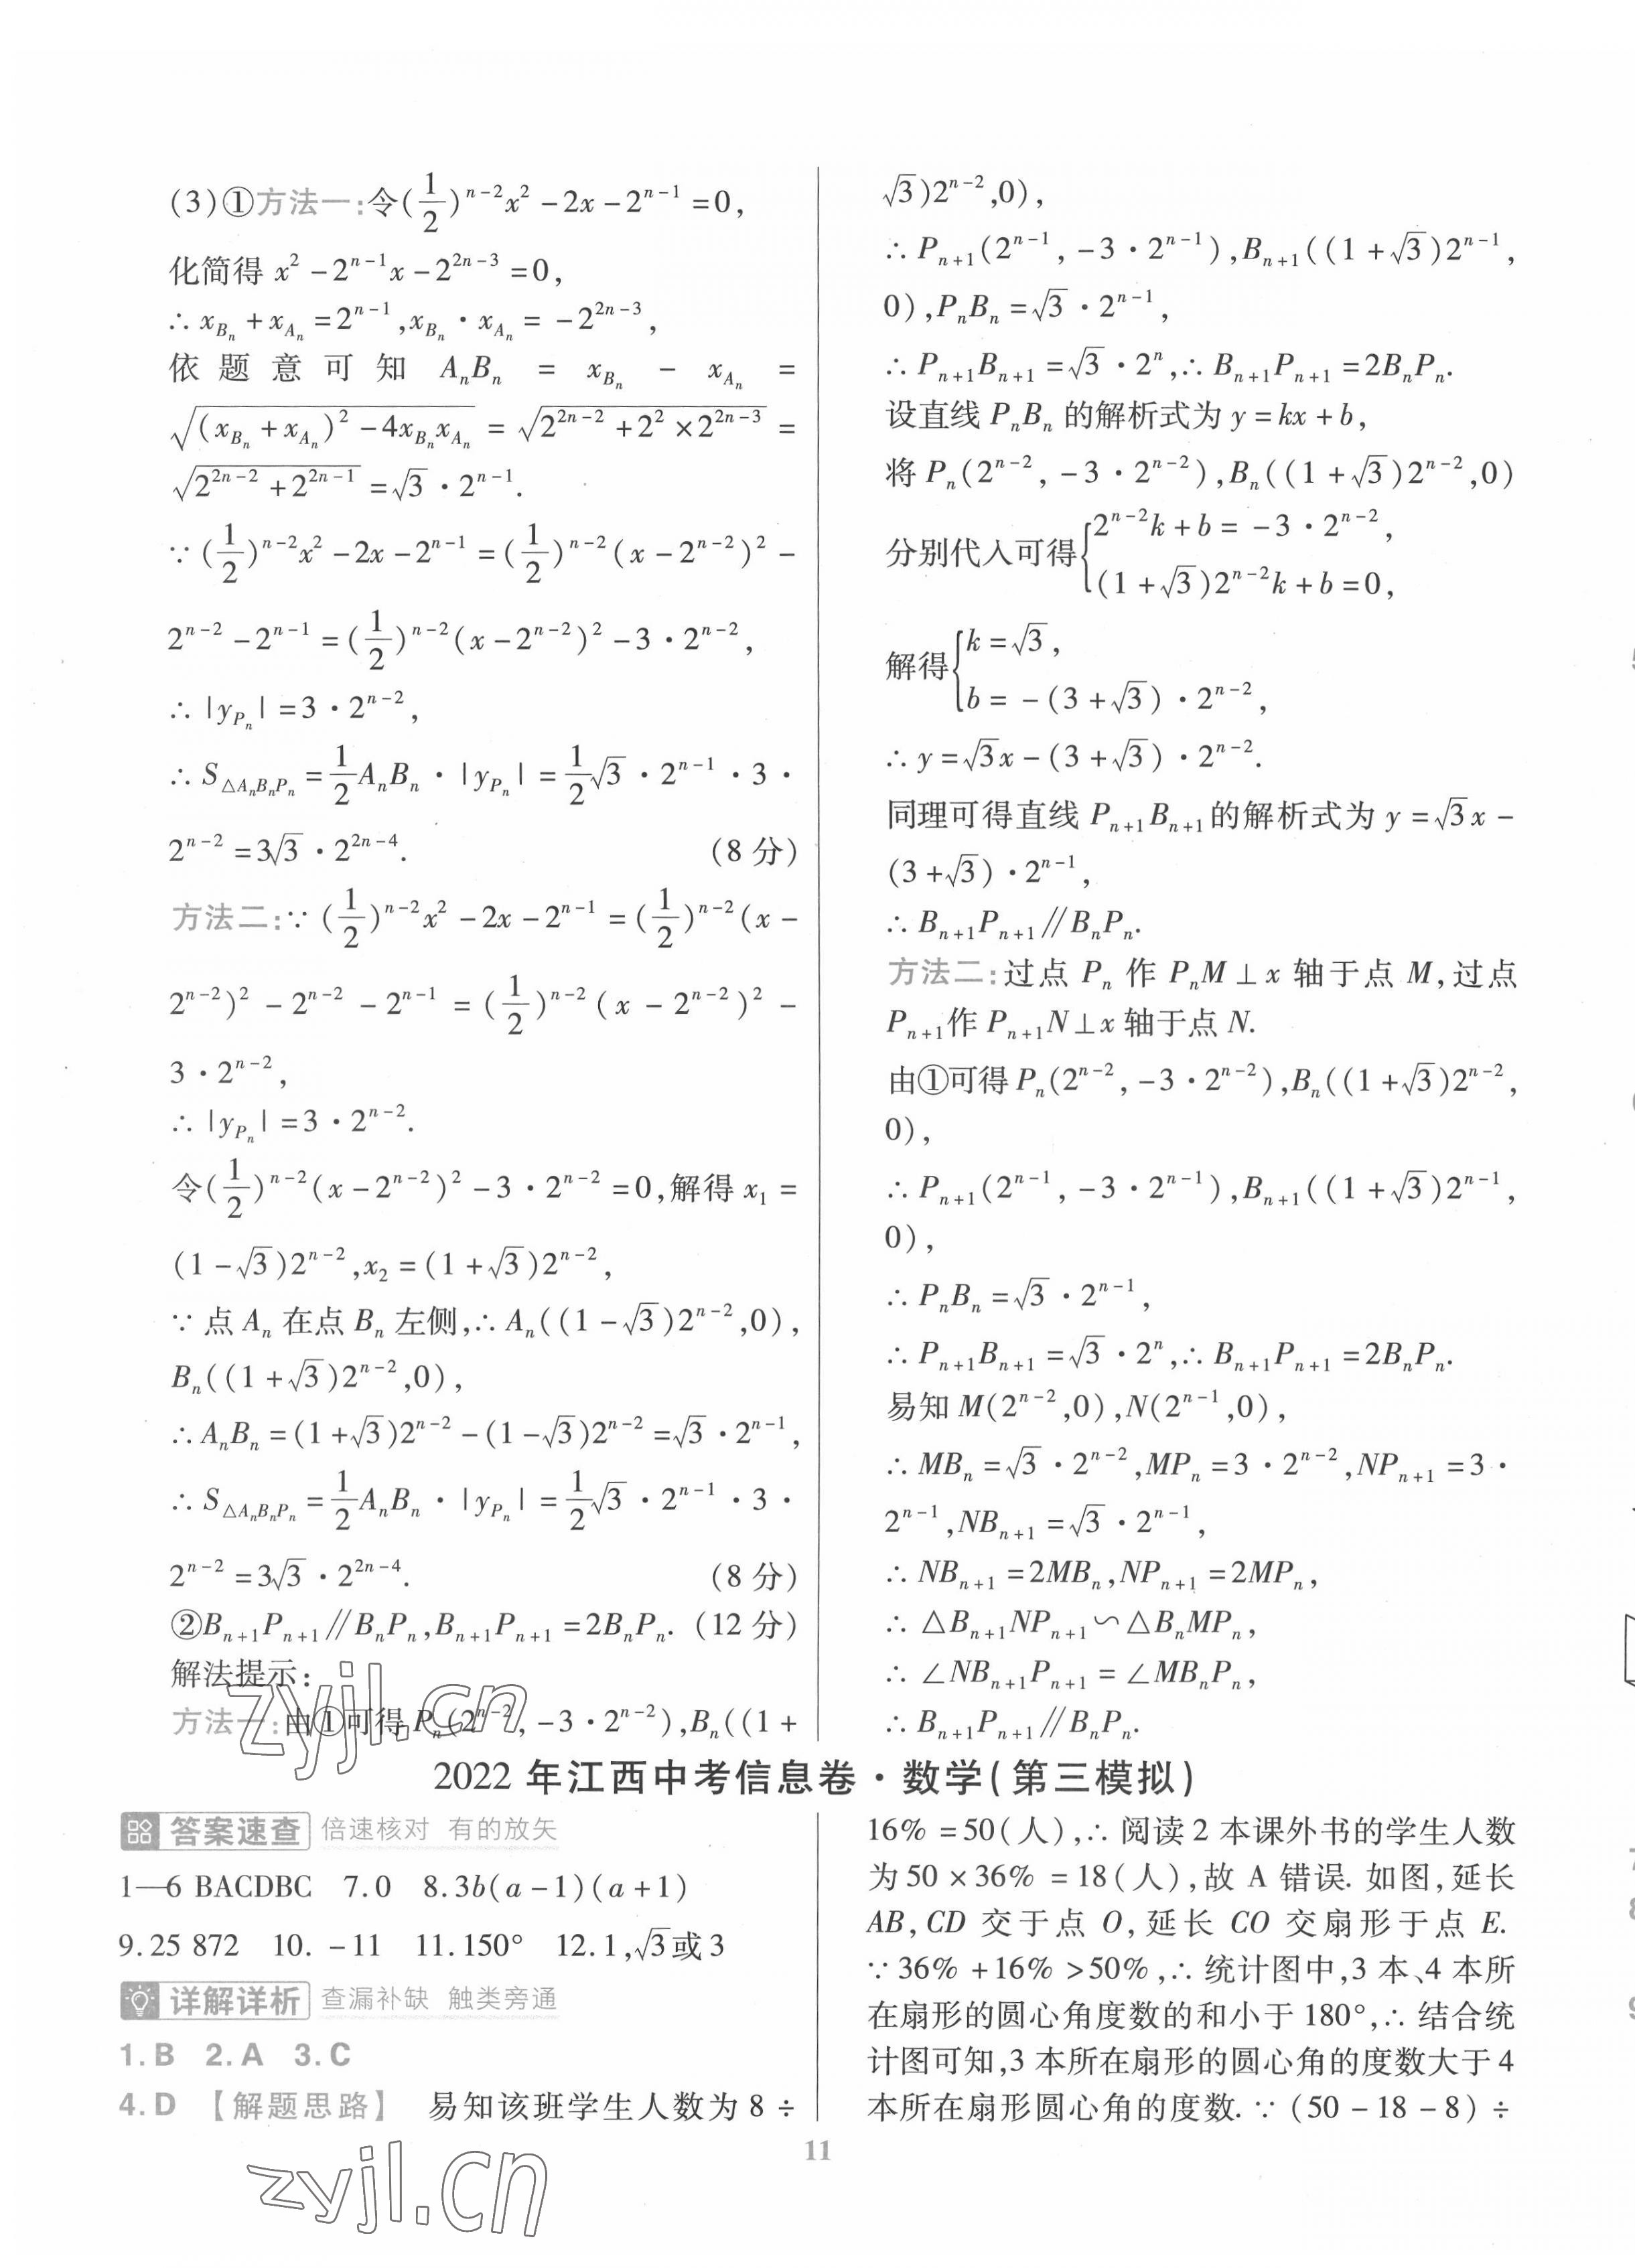 (3)①方法一:令(1/2)^{n-2}x²-2x-2^{n-1}=0,
化简得 x²-2^{n-1}x-2^{2n-3}=0,
∴ x_{B_n}+x_{A_n}=2^{n-1},x_{B_n}·x_{A_n}=-2^{2n-3},
依题意可知 A_nB_n = x_{B_n} - x_{A_n} =
√((x_{B_n}+x_{A_n})²-4x_{B_n}x_{A_n}) = √(2^{2n-2}+2²×2^{2n-3}) =
√(2^{2n-2}+2^{2n-1})=√3·2^{n-1}.
∵ (1/2)^{n-2}x²-2x-2^{n-1}=(1/2)^{n-2}(x-2^{n-2})²-
2^{n-2}-2^{n-1}=(1/2)^{n-2}(x-2^{n-2})²-3·2^{n-2},
∴ |y_{P_n}|=3·2^{n-2},
∴ S_{△A_nB_nP_n}=1/2 A_nB_n·|y_{P_n}|=1/2 √3·2^{n-1}·3·
2^{n-2}=3√3·2^{2n-4}. (8分)
方法二:∵ (1/2)^{n-2}x²-2x-2^{n-1}=(1/2)^{n-2}(x-
2^{n-2})²-2^{n-2}-2^{n-1}=(1/2)^{n-2}(x-2^{n-2})²-
3·2^{n-2},
∴ |y_{P_n}|=3·2^{n-2}.
令(1/2)^{n-2}(x-2^{n-2})²-3·2^{n-2}=0,解得 x₁=
(1-√3)2^{n-2},x₂=(1+√3)2^{n-2},
∵ 点 A_n 在点 B_n 左侧,∴ A_n((1-√3)2^{n-2},0),
B_n((1+√3)2^{n-2},0),
∴ A_nB_n=(1+√3)2^{n-2}-(1-√3)2^{n-2}=√3·2^{n-1},
∴ S_{△A_nB_nP_n}=1/2 A_nB_n·|y_{P_n}|=1/2 √3·2^{n-1}·3·
2^{n-2}=3√3·2^{2n-4}. (8分)
②B_{n+1}P_{n+1}∥B_nP_n,B_{n+1}P_{n+1}=2B_nP_n. (12分)
解法提示:
方法一:由①可得 P_n(2^{n-2},-3·2^{n-2}),B_n((1+
√3)2^{n-2},0),
∴ P_{n+1}(2^{n-1},-3·2^{n-1}),B_{n+1}((1+√3)2^{n-1},
0),P_nB_n=√3·2^{n-1},
∴ P_{n+1}B_{n+1}=√3·2^n,∴ B_{n+1}P_{n+1}=2B_nP_n.
设直线 P_nB_n 的解析式为 y=kx+b,
将 P_n(2^{n-2},-3·2^{n-2}),B_n((1+√3)2^{n-2},0)
分别代入可得{2^{n-2}k+b=-3·2^{n-2},
(1+√3)2^{n-2}k+b=0,
解得{k=√3,
b=-(3+√3)·2^{n-2},
∴ y=√3x-(3+√3)·2^{n-2}.
同理可得直线 P_{n+1}B_{n+1}的解析式为 y=√3x-
(3+√3)·2^{n-1},
∴ B_{n+1}P_{n+1}∥B_nP_n.
方法二:过点 P_n 作 P_nM⊥x 轴于点 M,过点
P_{n+1}作 P_{n+1}N⊥x 轴于点 N.
由①可得 P_n(2^{n-2},-3·2^{n-2}),B_n((1+√3)2^{n-2},
0),
∴ P_{n+1}(2^{n-1},-3·2^{n-1}),B_{n+1}((1+√3)2^{n-1},
0),
∴ P_nB_n=√3·2^{n-1},
∴ P_{n+1}B_{n+1}=√3·2^n,∴ B_{n+1}P_{n+1}=2B_nP_n.
易知 M(2^{n-2},0),N(2^{n-1},0),
∴ MB_n=√3·2^{n-2},MP_n=3·2^{n-2},NP_{n+1}=3·
2^{n-1},NB_{n+1}=√3·2^{n-1},
∴ NB_{n+1}=2MB_n,NP_{n+1}=2MP_n,
∴ △B_{n+1}NP_{n+1}∽△B_nMP_n,
∴ ∠NB_{n+1}P_{n+1}=∠MB_nP_n,
∴ B_{n+1}P_{n+1}∥B_nP_n.
zyjl.cn
2022年江西中考信息卷·数学(第三模拟)
答案速查 倍速核对 有的放矢
1—6 BACDBC 7.0 8.3b(a-1)(a+1)
9.25 872 10.-11 11.150° 12.1,√3或3
详解详析 查漏补缺 触类旁通
1.B 2.A 3.C
4.D 【解题思路】 易知该班学生人数为8÷
16%=50(人),∴ 阅读2本课外书的学生人数
为50×36%=18(人),故 A 错误. 如图,延长
AB,CD 交于点 O,延长 CO 交扇形于点 E.
∵ 36%+16%>50%,∴ 统计图中,3本、4本所
在扇形的圆心角度数的和小于180°,∴ 结合统
计图可知,3本所在扇形的圆心角的度数大于4
本所在扇形圆心角的度数. ∵ (50-18-8)÷
11
zyjl.cn